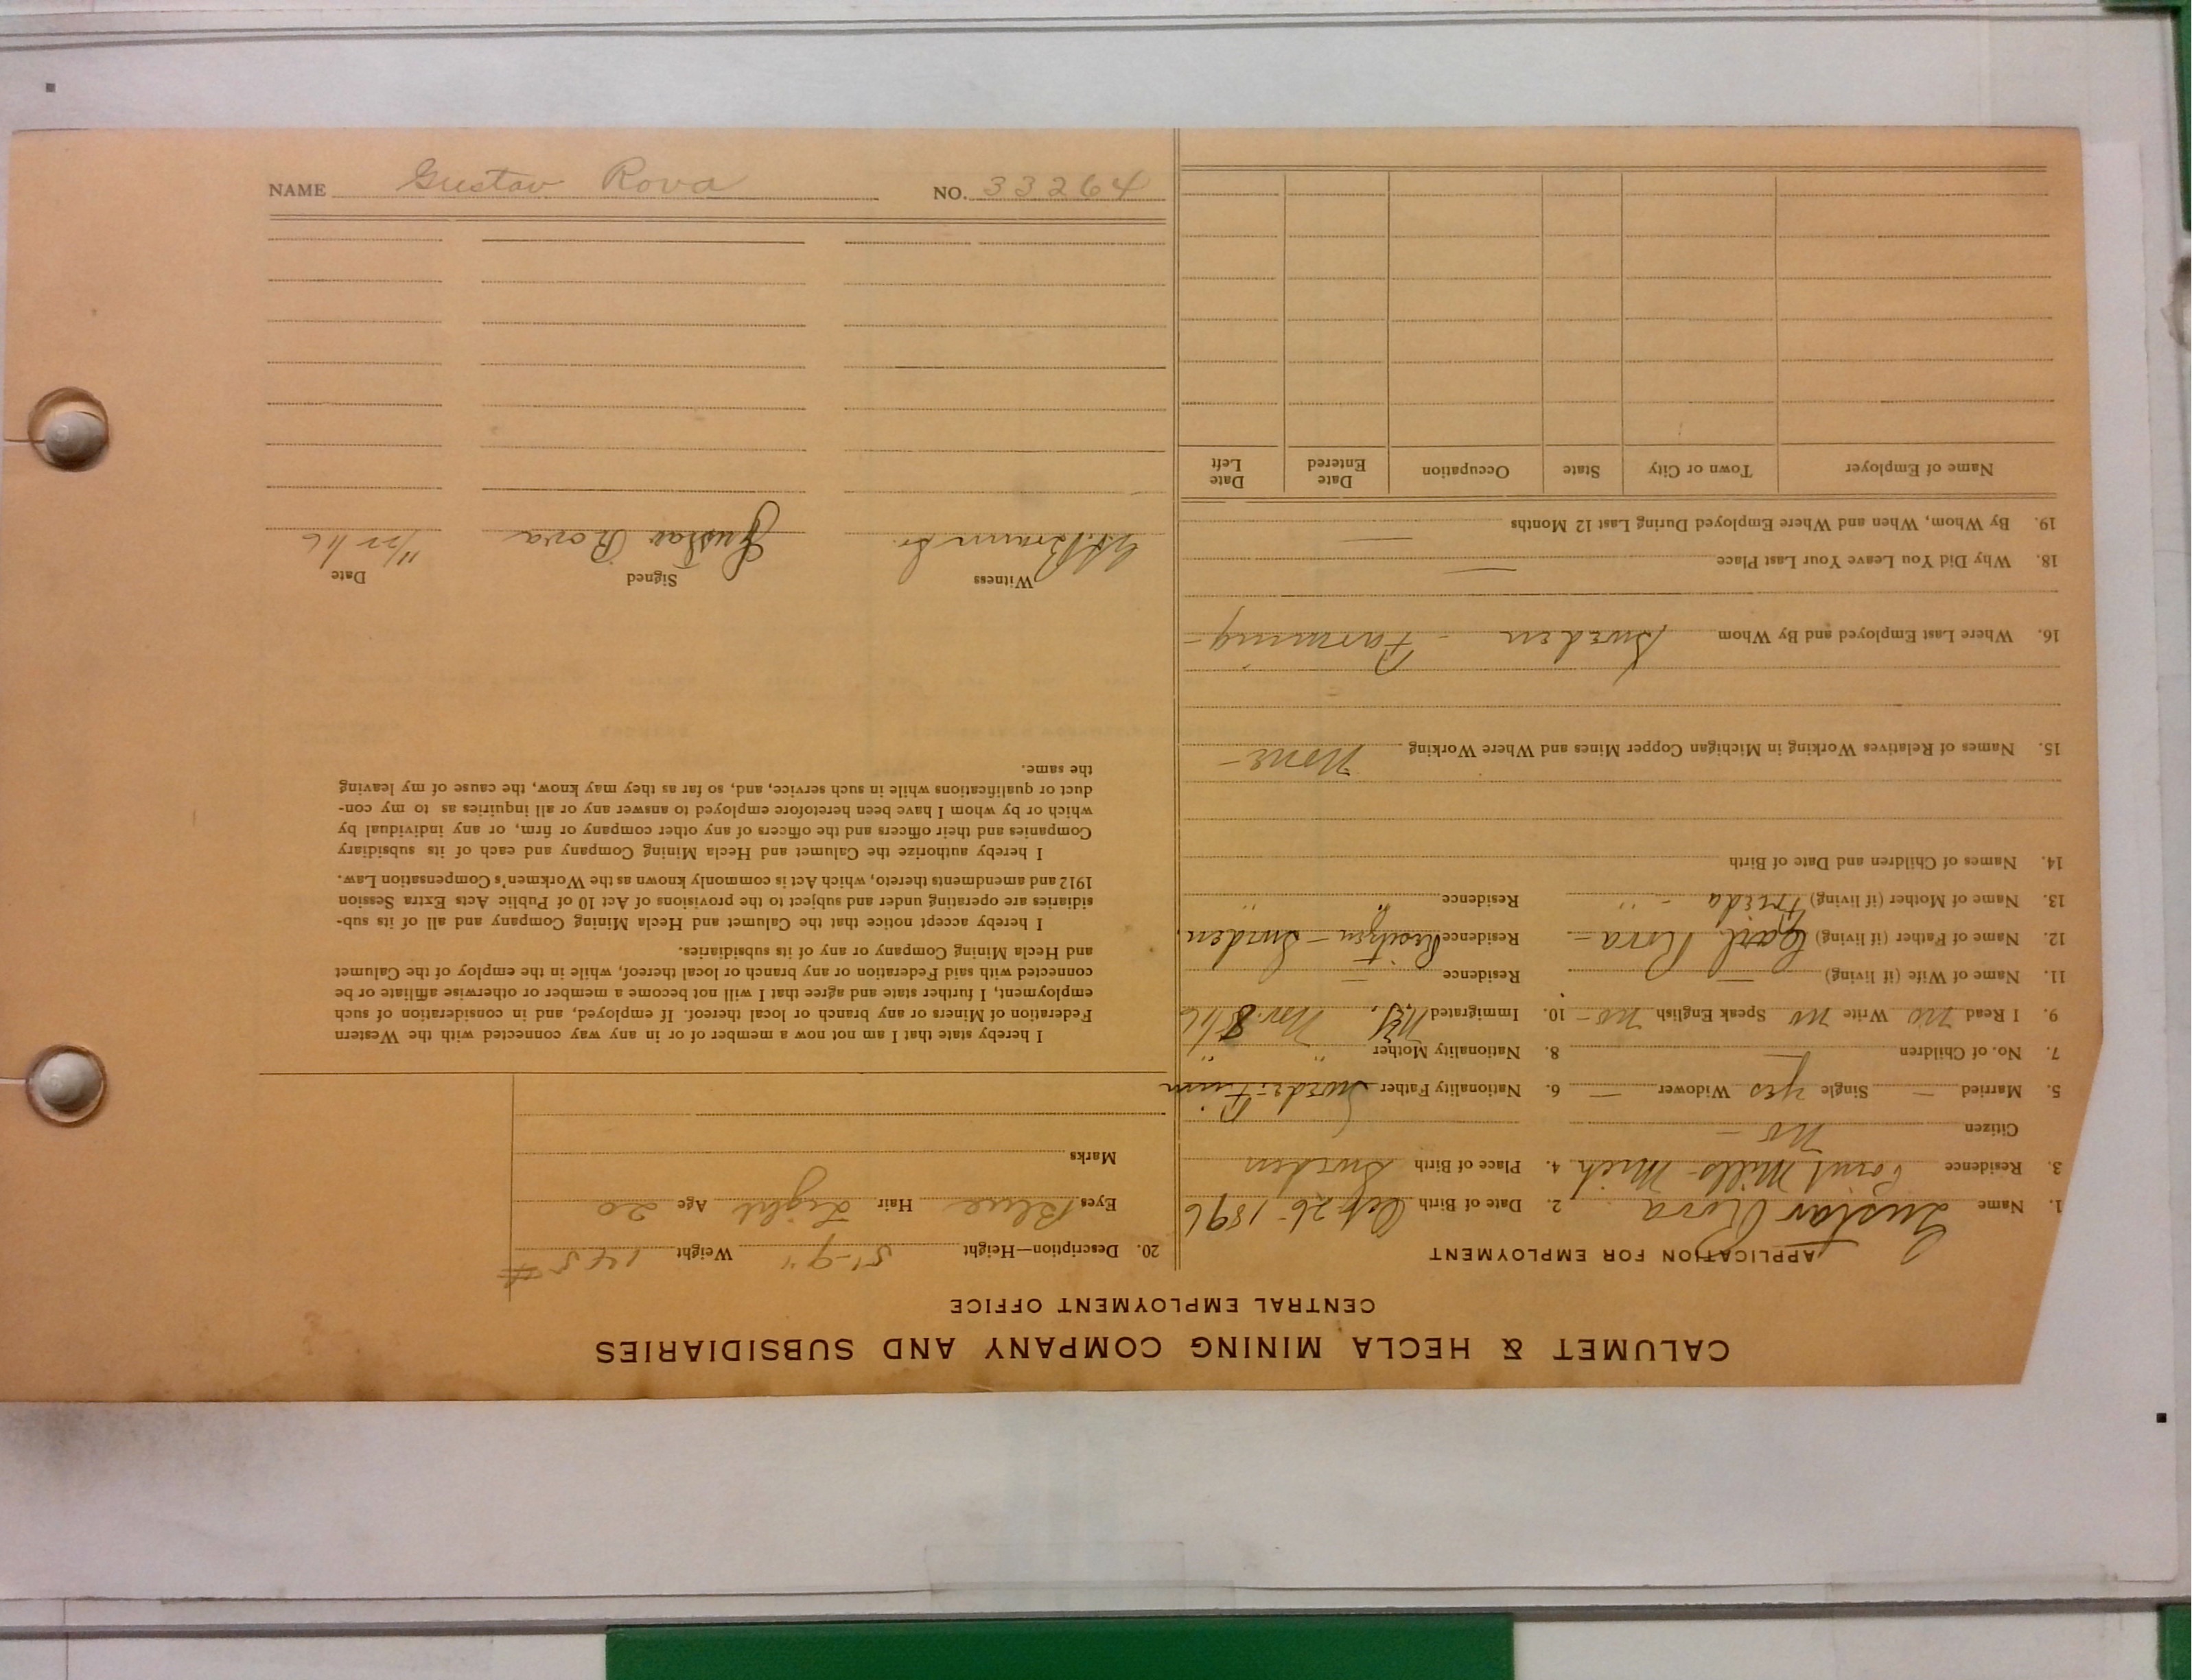 CALUMET & HECLA MINING COMPANY AND SUBSIDIARIES
CENTRAL EMPLOYMENT OFFICE
APPLICATION FOR EMPLOYMENT
1. Name Gustav Rova 2. Date of Birth 26 1896
3. Residence Point Mills - Mich 4. Place of Birth Sweden
Citizen no -
5. Married - Single yes Widower - 6. Nationality Father Swede-Finn
7. No. of Children - 8. Nationality Mother " "
9. I Read no Write no Speak English no - 10. Immigrated N.Y. Nov 8/16
11. Name of Wife (if living) - Residence -
12. Name of Father (if living) Carl Rova - Residence - Sweden
13. Name of Mother (if living) Frida - " Residence " "
14. Names of Children and Date of Birth
15. Names of Relatives Working in Michigan Copper Mines and Where Working None -
16. Where Last Employed and By Whom Sweden - Farming -
18. Why Did You Leave Your Last Place -
19. By Whom, When and Where Employed During Last 12 Months -
Name of Employer Town or City State Occupation Date Entered Date Left
20. Description—Height 5'-9" Weight 145#
Eyes Blue Hair Light Age 20
Marks
I hereby state that I am not now a member of or in any way connected with the Western
Federation of Miners or any branch or local thereof. If employed, and in consideration of such
employment, I further state and agree that I will not become a member or otherwise affiliate or be
connected with said Federation or any branch or local thereof, while in the employ of the Calumet
and Hecla Mining Company or any of its subsidiaries.
I hereby accept notice that the Calumet and Hecla Mining Company and all of its sub-
sidiaries are operating under and subject to the provisions of Act 10 of Public Acts Extra Session
1912 and amendments thereto, which Act is commonly known as the Workmen's Compensation Law.
I hereby authorize the Calumet and Hecla Mining Company and each of its subsidiary
Companies and their officers and the officers of any other company or firm, or any individual by
which or by whom I have been heretofore employed to answer any or all inquiries as to my con-
duct or qualifications while in such service, and, so far as they may know, the cause of my leaving
the same.
Witness Signed Date
Gustav Rova 11/22/16
NAME Gustav Rova NO. 33264